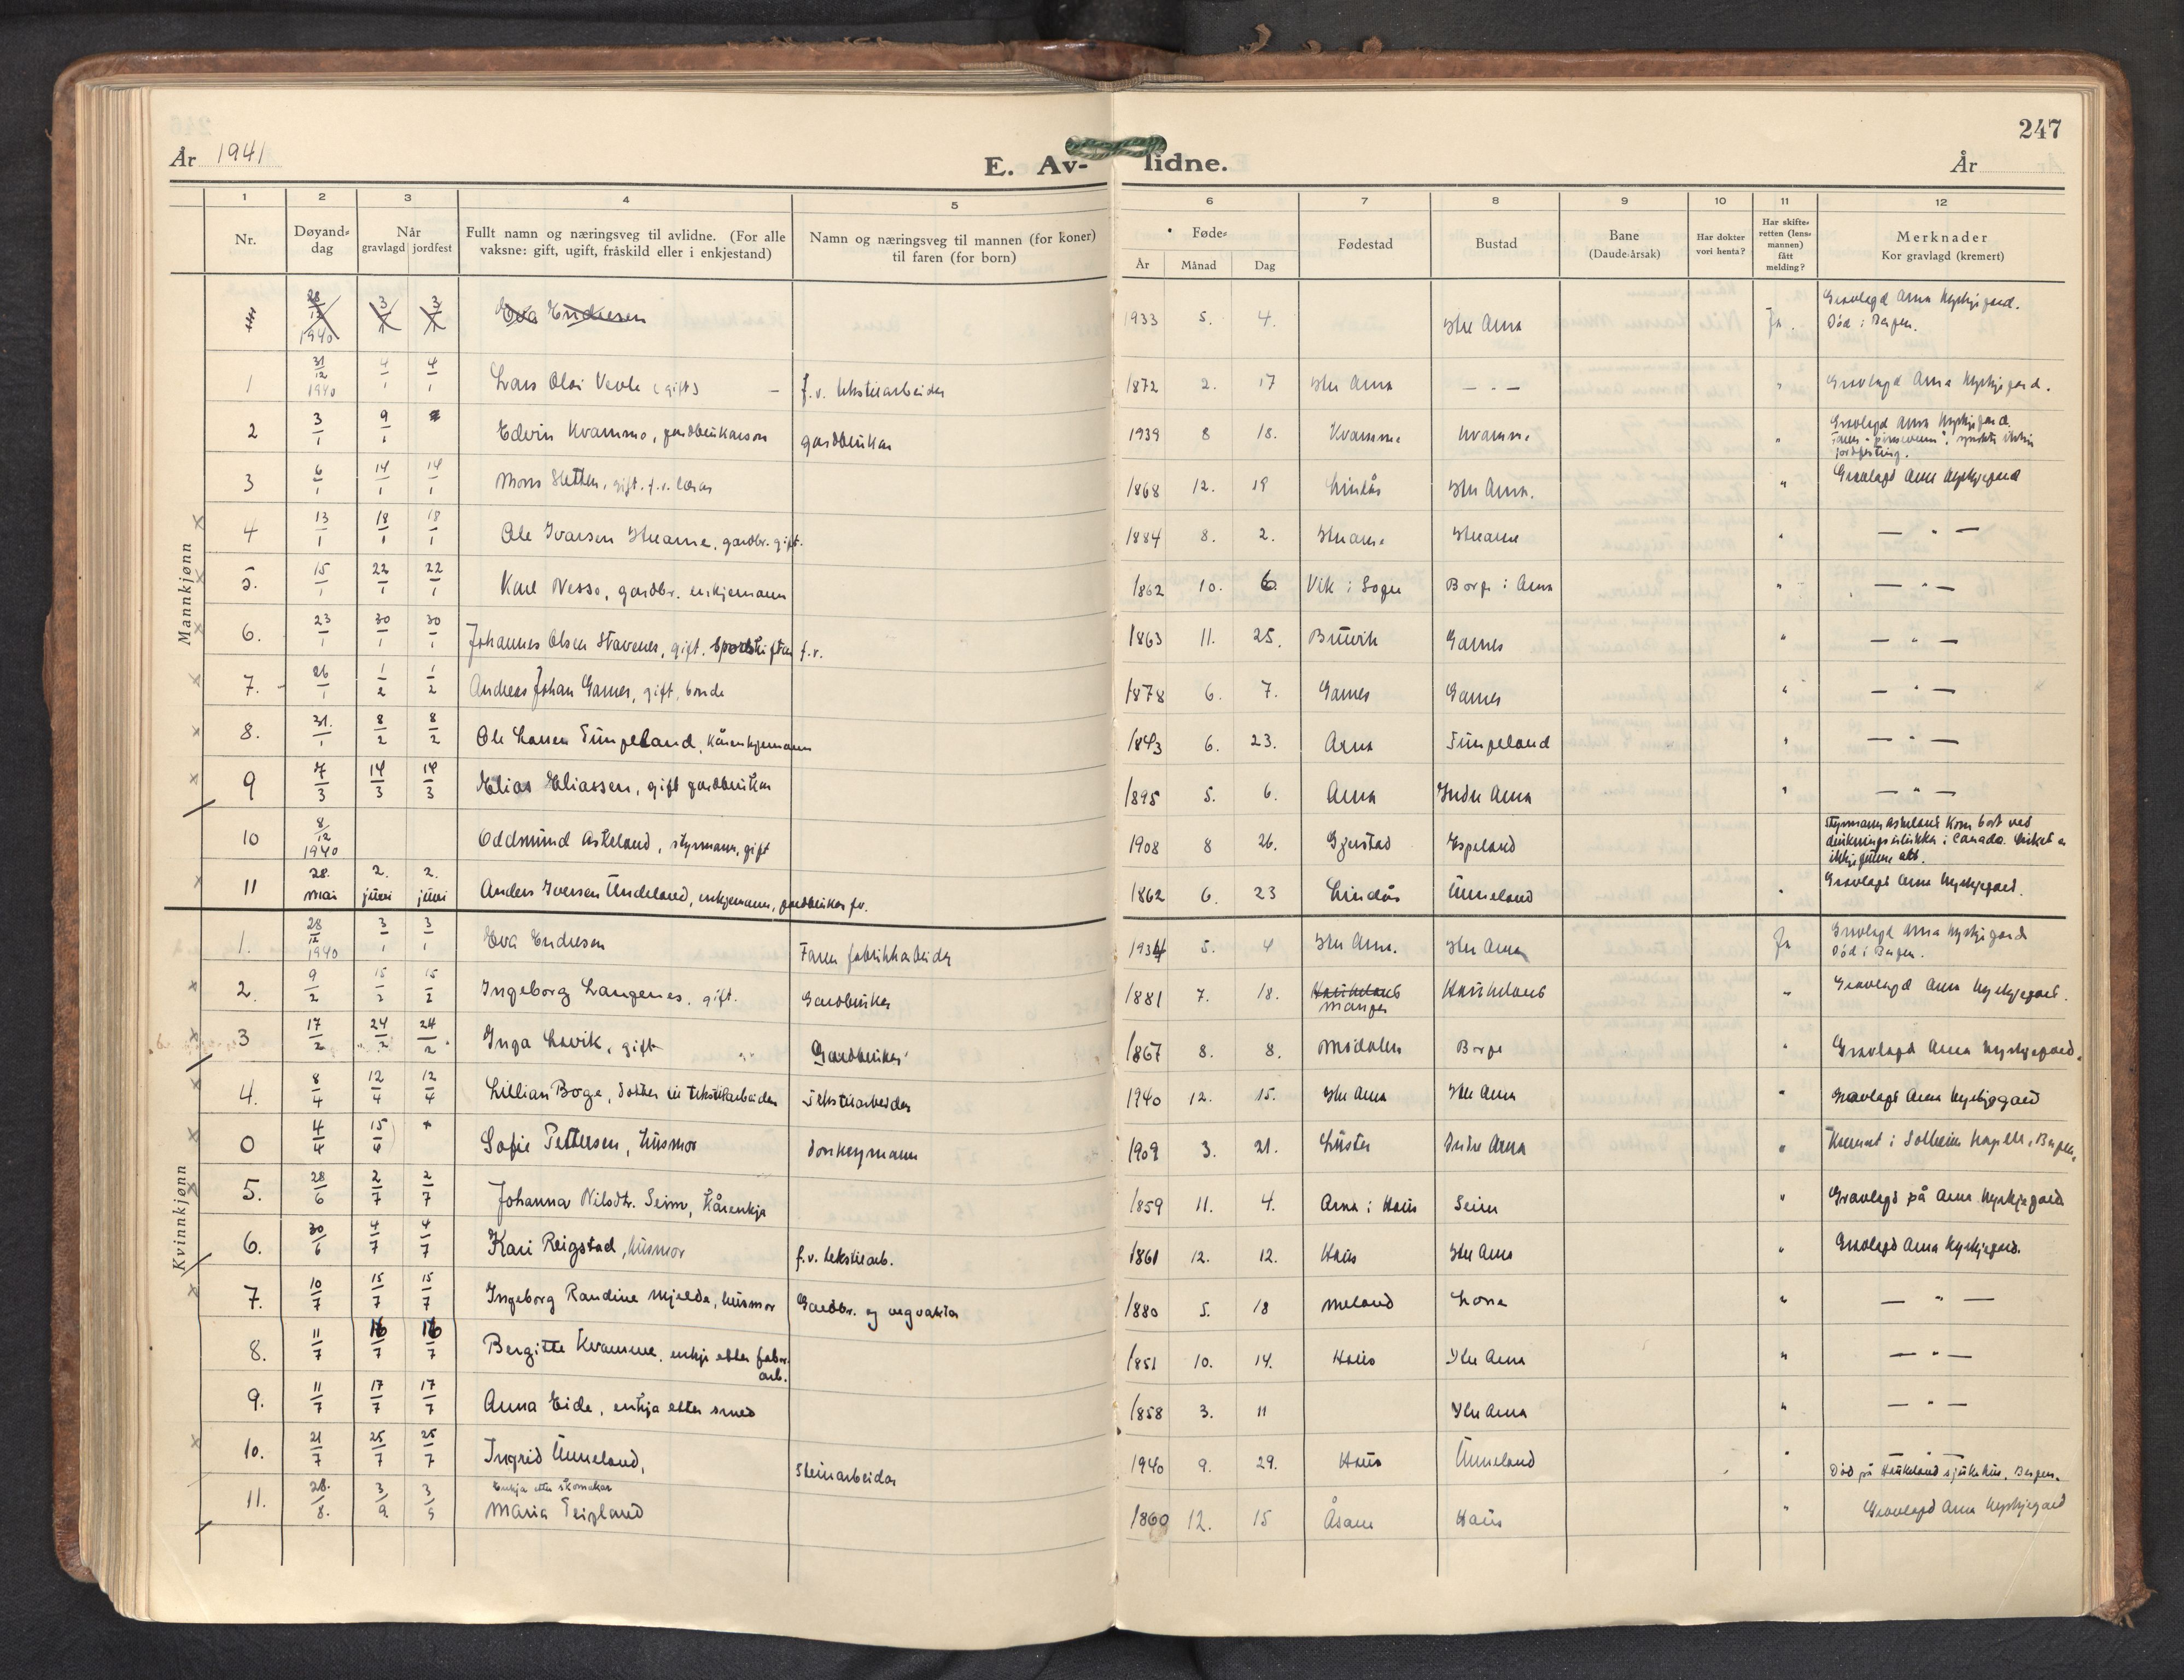 247
År 1941 E. Av- lidne. År
1 2 3 4 5 6 7 8 9 10 11 12
Nr.
Døyand-
dag
Når
gravlagd jordfest
Fullt namn og næringsveg til avlidne. (For alle
vaksne: gift, ugift, fråskild eller i enkjestand)
Namn og næringsveg til mannen (for koner)
til faren (for born)
Føde-
År Månad Dag
Fødestad
Bustad
Bane
(Daude-årsak)
Har dokter
vori henta?
Har skifte-
retten (lens-
mannen)
fått
melding?
Merknader
Kor gravlagd (kremert)
Mannkjønn
28/12 1940 3/1 3/1 Eva Endresen 1933 5. 4. Ytre Arna Ja. Gravlagd Arna Kyrkjegard.
Død i Bergen.
1 31/12 1940 4/1 4/1 Lars Olai Vevle (gift) – f.v. tekstilarbeider 1872 2. 17 Ytre Arna — " — " Gravlagd Arna Kyrkjegard.
2 3/1 9/1 Edvin Kvamme, gardbrukarson gardbrukar 1939 8 18. Kvamme Kvamme " Gravlagd Arna Kyrkjegard.
jordfesting.
3 6/1 14/1 14/1 Mons Sletten, gift. f.v. lærar 1868 12. 19 Lindås Ytre Arna. " Gravlagd Arna Kyrkjegard
4 13/1 18/1 18/1 Ole Ivarsen Ytrearne, gardbr. gift. 1884 8. 2. Ytrearne Ytrearne " — " —
5. 15/1 22/1 22/1 Karl Nesse, gardbr. enkjemann 1862 10. 6. Vik i Sogn Borge i Arna " — " —
6. 23/1 30/1 30/1 Johannes Olsen Stavenes, gift. f.v. 1863 11. 25. Bruvik Garnes " — " —
7. 26/1 1/2 1/2 Andreas Johan Garnes, gift, bonde 1878 6. 7. Garnes Garnes " — " —
8. 31./1 8/2 8/2 Ole Larsen Tungeland, Kårenkjemann 1843 6. 23. Arna Tungeland " — " —
9 7/3 14/3 14/3 Elias Eliassen, gift gardbrukar 1895 5. 6. Arna Indre Arna " — " —
10 8/12 1940 Oddmund Askeland, styrmann, gift 1908 8 26. Gjerstad Espeland Styrmann Askeland kom bort ved
drukningsulukke i Canada. Liket er
ikkje funne att.
11 28. mai 2. juni 2. juni Anders Iversen Undeland, enkjemann, gardbrukar fv. 1862 6. 23 Lindås Unneland " Gravlagd Arna Kyrkjegard.
Kvinnkjønn
1. 28/12 1940 3/1 3/1 Eva Endresen Faren fabrikkarbeider 1934 5. 4 Ytre Arna. Ytre Arna Ja Gravlagd Arna Kyrkjegard
Død i Bergen.
2. 9/2 15/2 15/2 Ingeborg Langenes, gift. Gardbrukar 1881 7. 18. Haukeland Manger Haukeland " Gravlagd Arna Kyrkjegard.
3 17/2 24/2 24/2 Inga Lavik, gift Gardbrukar 1867 8. 8. Modalen Borge " Gravlagd Arna Kyrkjegard.
4. 8/4 12/4 12/4 Lillian Boge, dotter til tekstilarbeider Tekstilarbeider 1940 12. 15. Ytre Arna Ytre Arna " Gravlagd Arna Kyrkjegard
0 4/4 15/4 + Sofie Pettersen, husmor donkeymann 1909 3. 21. Luster Indre Arna " Kremert i Solheim Kapell, Bergen.
5. 28/6 2/7 2/7 Johanna Nilsdtr. Seim, Kårenkja 1859 11. 4. Arna i Haus Seim " Gravlagd på Arna Kyrkjegard
6. 30/6 4/7 4/7 Kari Reigstad, husmor f.v. tekstilarb. 1861 12. 12. Haus Ytre Arna " Gravlagd Arna Kyrkjegard.
7. 10/7 15/7 15/7 Ingeborg Randine Mjelde, husmor Gardbr. og vegvaktar 1880 5. 18 Meland Lone " — " —
8. 11/7 16/7 16/7 Bergitte Kvamme, enkje etter fabr. arb. 1851 10. 14. Haus Ytre Arna " — " —
9. 11/7 17/7 17/7 Anna Eide, enkja etter smed 1858 3. 11 Ytre Arna " — " —
10. 21/7 25/7 25/7 Ingrid Unneland, Steinarbeidar 1940 9. 29. Haus Unneland " — " —
Død på Haukeland sjukehus, Bergen.
11. 28./8. 3/9 3/9 Enkja etter skomakar
Maria Teigland 1860 12. 15 Åsane Haus " Gravlagd Arna Kyrkjegard